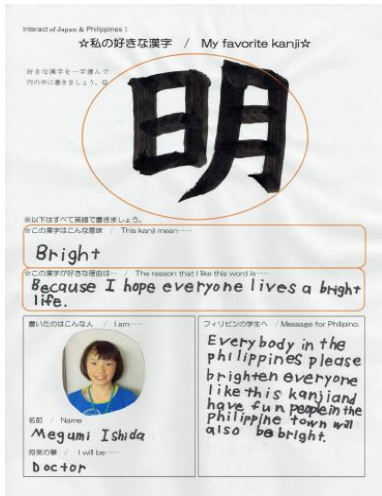 Interact of Japan & Philippines !
☆私の好きな漢字 / My favorite kanji☆
好きな漢字を一字選んで
円の中に書きましょう。
明
※以下はすべて英語で書きましょう。
☆この漢字はこんな意味 / This kanji mean……
Bright
☆この漢字が好きな理由は… / The reason that I like this word is……
Because I hope everyone lives a bright
life.
書いたのはこんな人 / I am……
名前 / Name
Megumi Ishida
将来の夢 / I will be……
Doctor
フィリピンの学生へ / Message for Philipino.
Everybody in the
philippines please
brighten everyone
like this kanjiand
have fun people in the
philippine town will
also be bright.